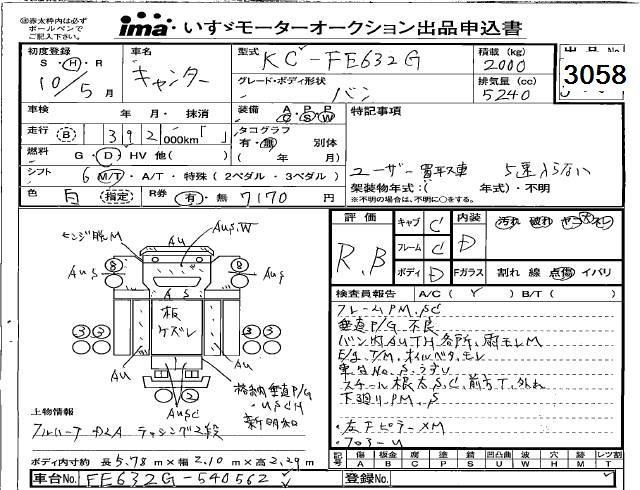 ※赤太枠内は必ず
ボールペンで
ご記入下さい。
ima いすゞモーターオークション出品申込書
初度登録 車名 型式 KC-FE632G 積載 (kg) 2000
S・H・R
10/5月 キャンター グレード・ボディ形状 バン 排気量 (cc) 5240
3058
車検 年 月・ 抹消 装備 A・P・P C S W 特記事項
走行 B 392 000km「 」 タコグラフ
有・無 別体
燃料 G・D・HV 他( ) ( 年 月)
シフト 6 M/T・A/T・特殊(2ペダル・3ペダル) ユーザー買取車 5速入らない
架装物年式:( 年式)・不明
色 白 指定 R券 有・無 7170円 ※不明の場合は、不明に○をする。
評価 キャブ C 内装 汚れ 破れ
R.B フレーム C D
ボディ D Fガラス 割れ 線 点傷 イバリ
ヒンジ脱M AUS.W
AU
AUS 8 8 AUS
A S
板
ケズレ
3 3 3 3
AU AU
格納垂直P/G
・USCH
新明和
AUSC
検査員報告 A/C( ) B/T( )
フレームPM.SC
垂直P/G 不良
バン内AUTH各所、雨モレM
E/g.T/M.オイルベタ,モレ
車台No.S.うすい
スチール根太S.C.前方T.外れ
下廻りPM.S
・左下ピラーXM
・フロアーU
上物情報
ボディ内寸約 長5.78m×幅2.10m×高2.29m
記号 傷 A 板金 B 腐 C 塗 P 錆 S 凹凸曲 U 波 W 穴 H 跡 M レツ割 T
車台No. FE632G-540562 登録No.